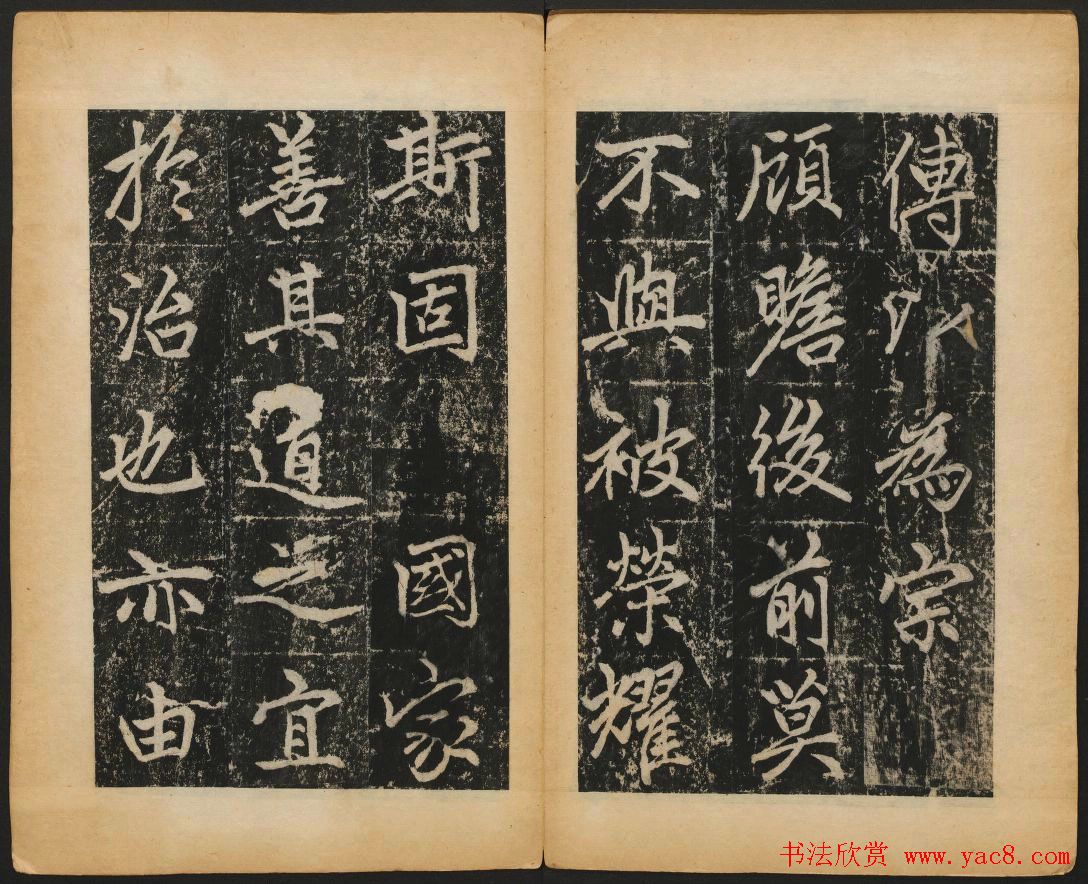 傳以為宗
頋瞻後前莫
不與被榮耀
斯固國家
善其道之宜
扵治也亦由
书法欣赏 www.yac8.com